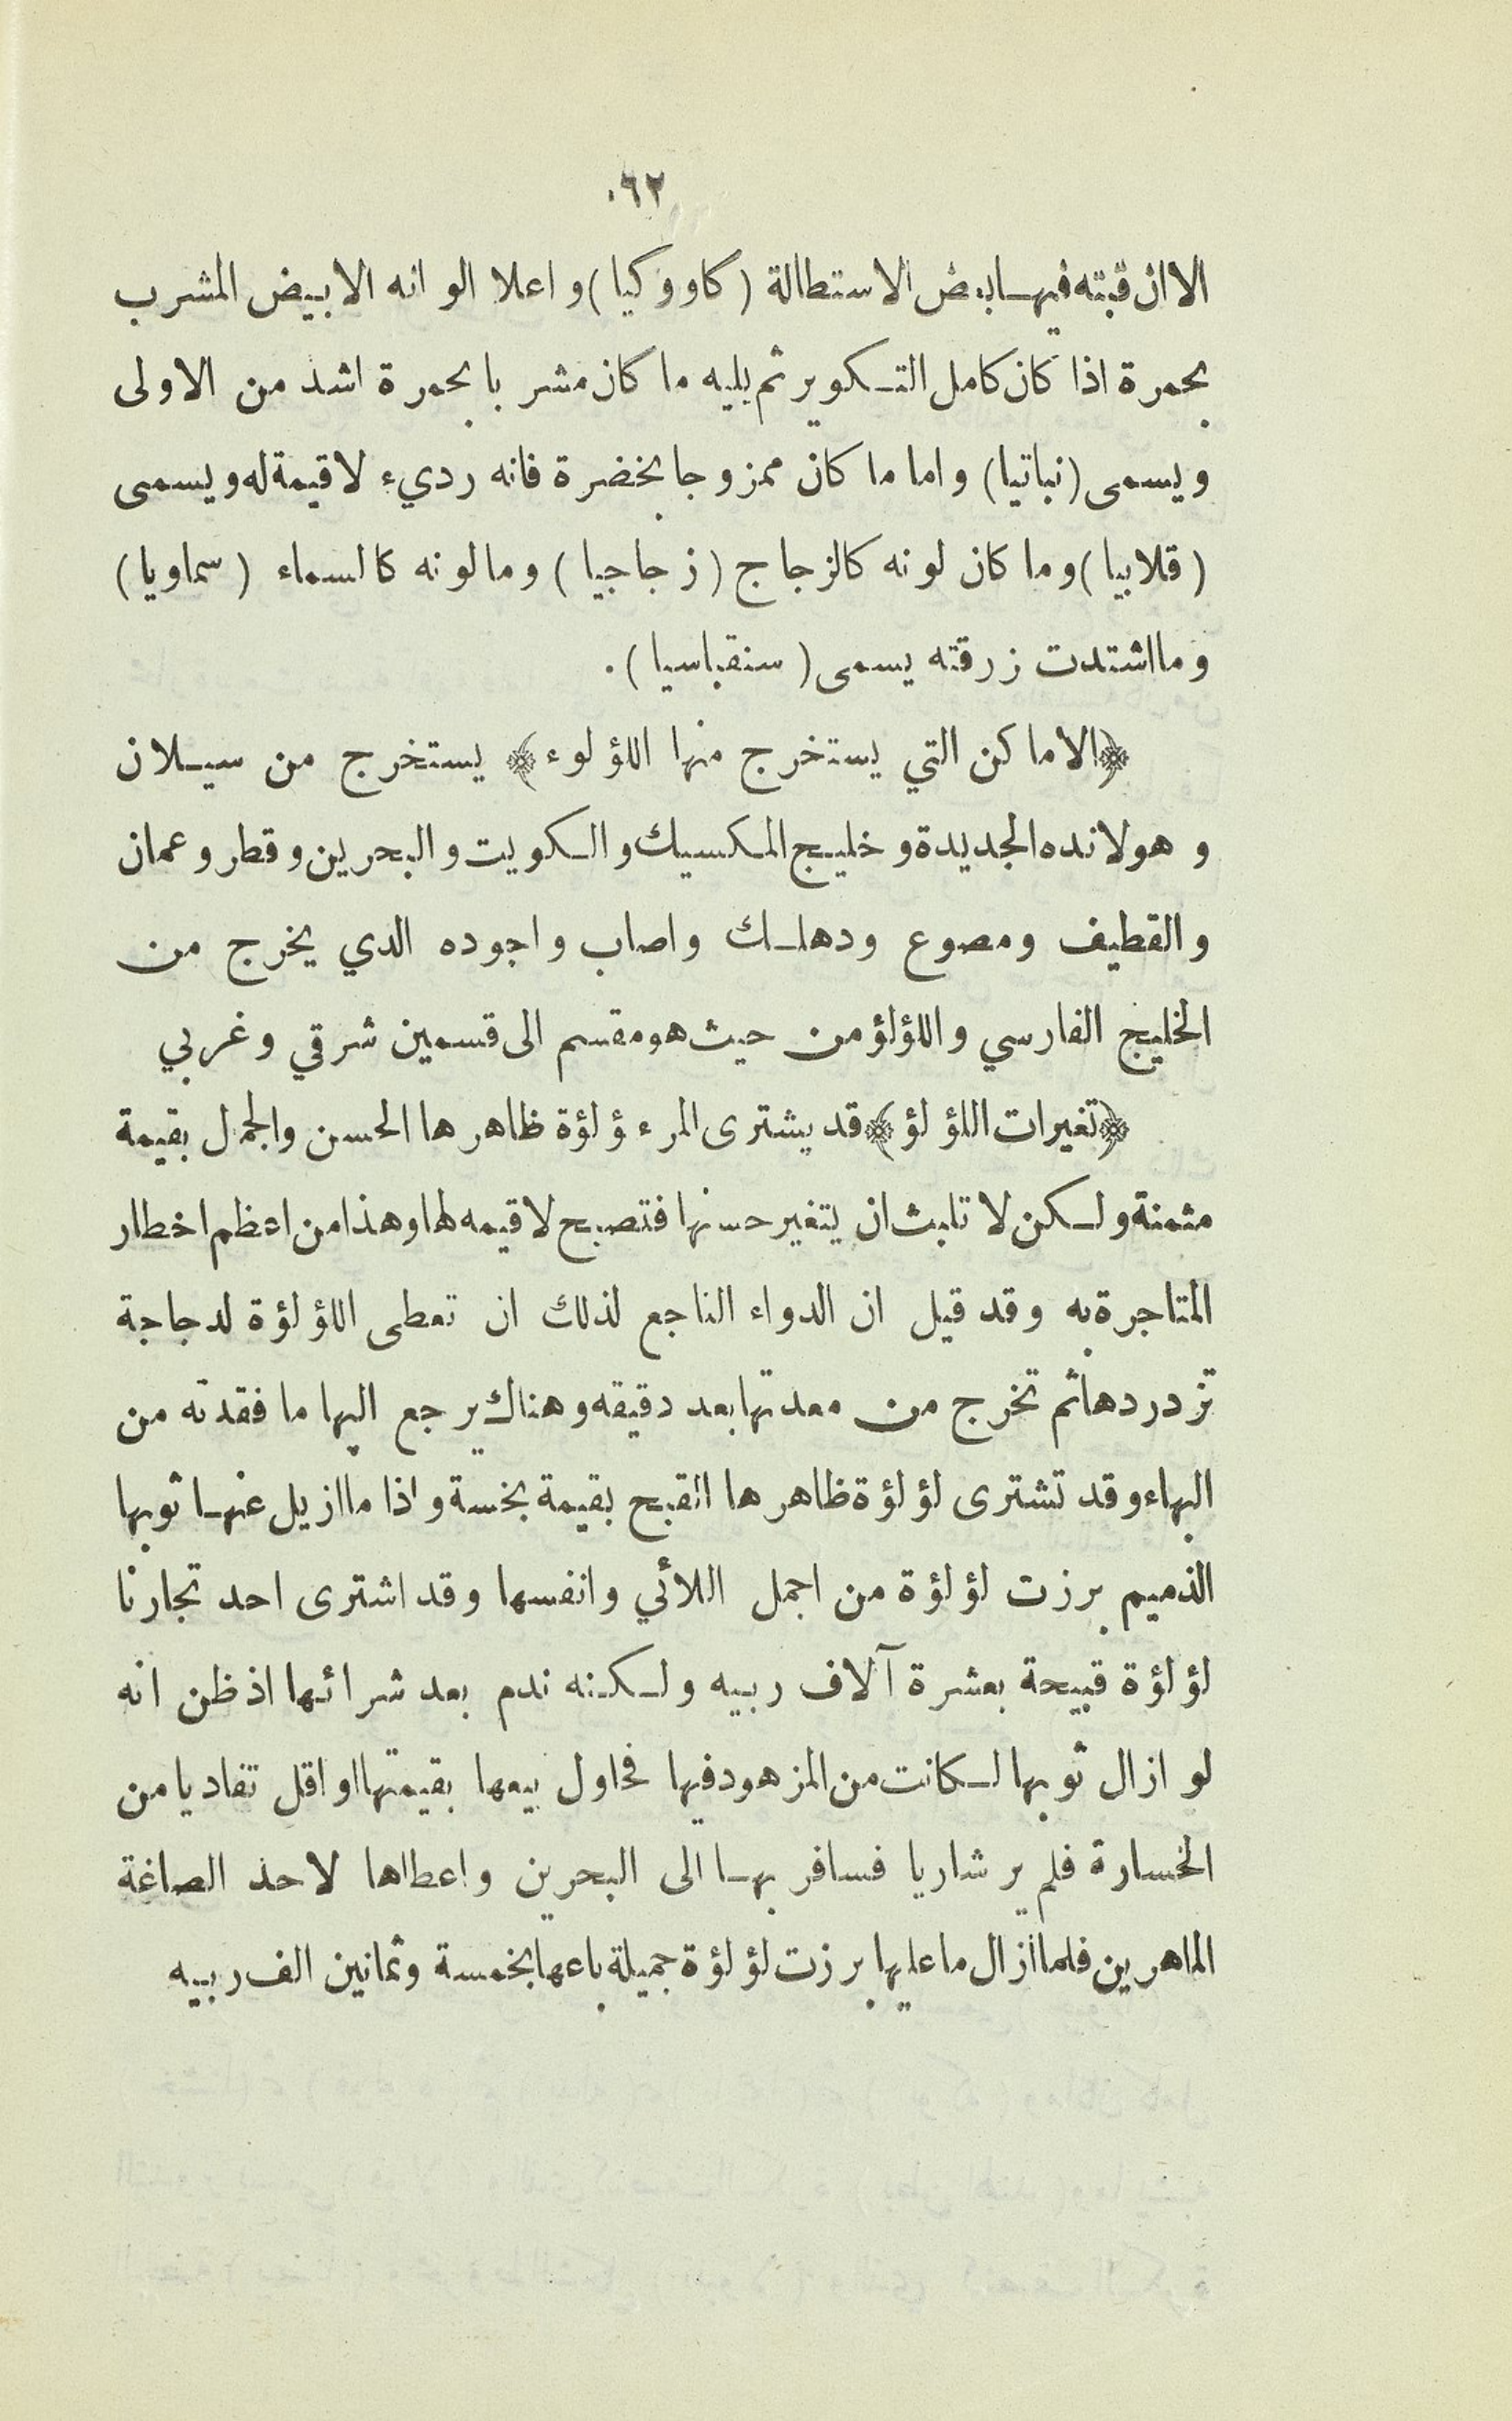 ٠٦٢
الا ان قبته فيها بعض الاستطالة (كاووكيا) واعلا الوانه الابيض المشرب
بحمرة اذا كان كامل التكوير ثم يليه ما كان مشربا بحمرة اشد من الاولى
ويسمى (نباتيا) واما ما كان ممزوجا بخضرة فانه رديء لا قيمة له ويسمى
(قلابيا) وما كان لونه كالزجاج (زجاجيا) وما لونه كالسماء (سماويا)
وما اشتدت زرقته يسمى (سنقباسيا) .
﴿الاماكن التي يستخرج منها اللؤلوء﴾ يستخرج من سيلان
وهولانده الجديدة وخليج المكسيك والكويت والبحرين وقطر وعمان
والقطيف ومصوع ودهلك واصاب واجوده الدي يخرج من
الخليج الفارسي واللؤلؤ من حيث هو مقسم الى قسمين شرقي وغربي
﴿تغيرات اللؤلؤ﴾ قد يشترى المرء ؤلؤة ظاهرها الحسن والجمل بقيمة
مثمنة ولكن لا تلبث ان يتغير حسنها فتصبح لا قيمه لها وهذا من اعظم اخطار
المتاجرة به وقد قيل ان الدواء الناجع لذلك ان تعطى اللؤلؤة لدجاجة
تزدردها ثم تخرج من معدتها بعد دقيقه وهناك يرجع اليها ما فقدته من
البهاء وقد تشترى لؤلؤة ظاهرها القبح بقيمة بخسة واذا ما ازيل عنها ثوبها
الذميم برزت لؤلؤة من اجمل اللائي وانفسها وقد اشترى احد تجارنا
لؤلؤة قبيحة بعشرة آلاف ربيه ولكنه ندم بعد شرائها اذ ظن انه
لو ازال ثوبها لكانت من المزهود فيها فحاول بيعها بقيمتها او اقل تفاديا من
الخسارة فلم ير شاريا فسافر بها الى البحرين واعطاها لاحذ الصاغة
الماهرين فلما أزال ما عليها برزت لؤلؤة جميلة باعها بخمسة وثمانين الف ربيه